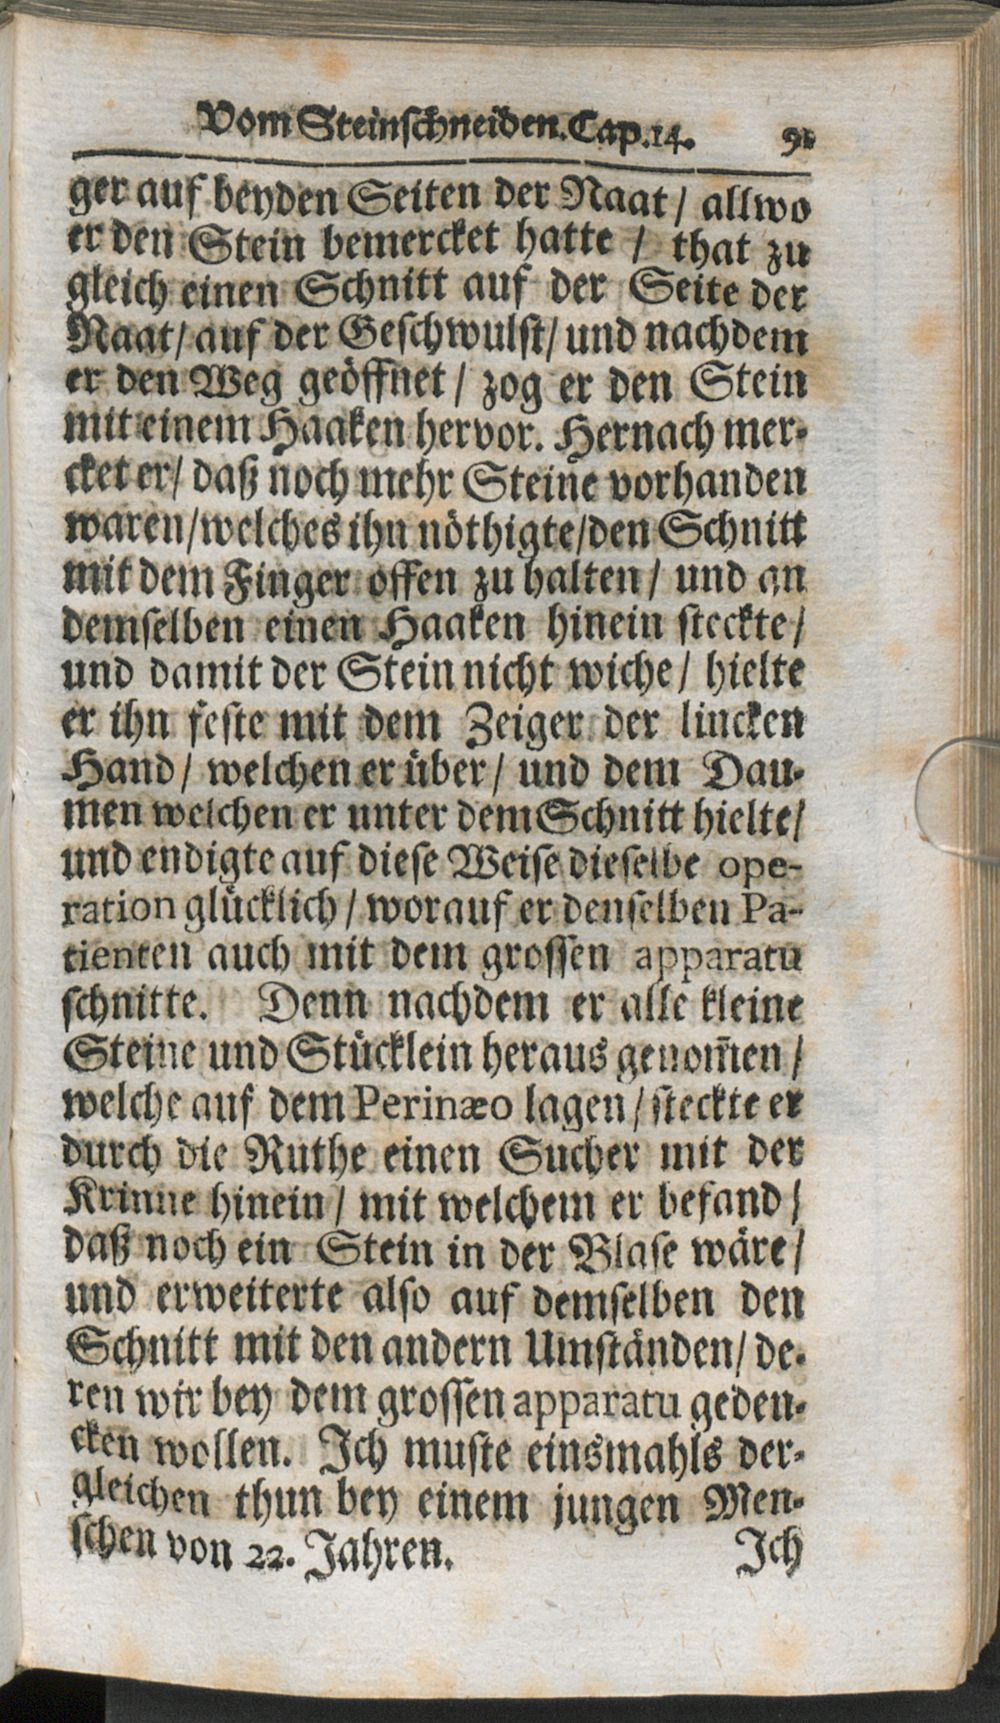 Vom Steinschneiden. Cap. 14.
ger auf beyden Seiten der Naat / allwo
er den Stein bemercket hatte / that zu
gleich einen Schnitt auf der Seite der
Naat / auf der Geschwulst / und nachdem
er den Weg geöffnet / zog er den Stein
mit einem Haaken hervor. Hernach mer-
cket er / daß noch mehr Steine vorhanden
waren / welches ihn nöthigte / den Schnitt
mit dem Finger offen zu halten / und an
demselben einen Haaken hinein steckte /
und damit der Stein nicht wiche / hielte
er ihn feste mit dem Zeiger der lincken
Hand / welchen er über / und dem Dau-
men welchen er unter dem Schnitt hielte /
und endigte auf diese Weise dieselbe ope-
ration glücklich / worauf er denselben Pa-
tienten auch mit dem grossen apparatu
schnitte. Denn nachdem er alle kleine
Steine und Stücklein heraus genom̄en /
welche auf dem Perinæo lagen / steckte er
durch die Ruthe einen Sucher mit der
Krinne hinein / mit welchem er befand /
daß noch ein Stein in der Blase wäre /
und erweiterte also auf demselben den
Schnitt mit den andern Umständen / de-
ren wir bey dem grossen apparatu geden-
cken wollen. Ich muste einsmahls der-
gleichen thun bey einem jungen Men-
schen von 22. Jahren.
Ich